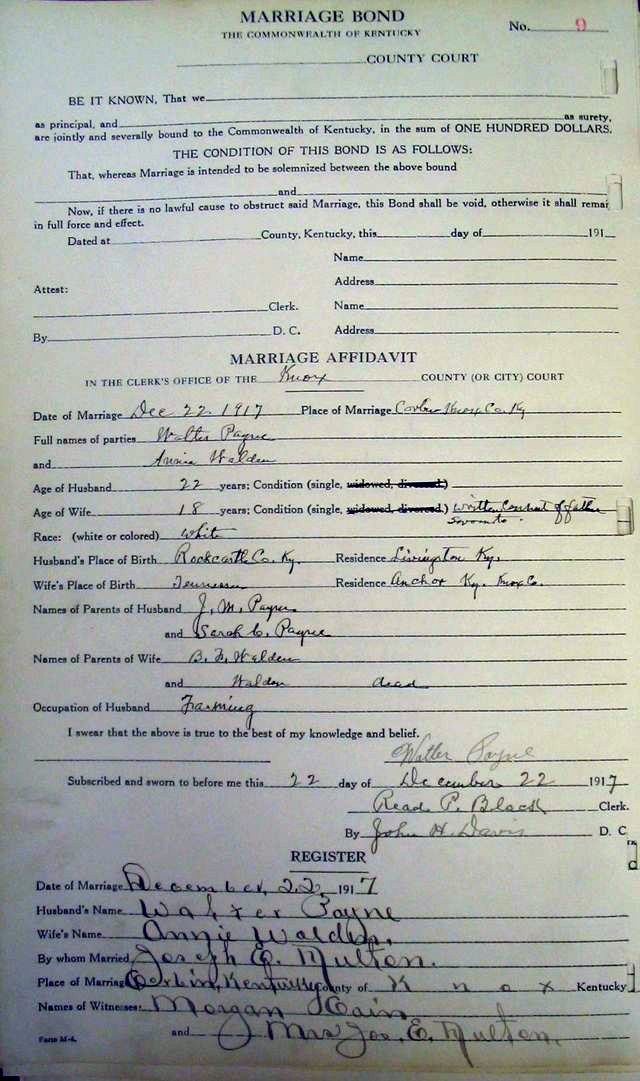 MARRIAGE BOND
THE COMMONWEALTH OF KENTUCKY
No. 9
COUNTY COURT
BE IT KNOWN, That we
as principal, and as surety,
are jointly and severally bound to the Commonwealth of Kentucky, in the sum of ONE HUNDRED DOLLARS.
THE CONDITION OF THIS BOND IS AS FOLLOWS:
That, whereas Marriage is intended to be solemnized between the above bound
and
Now, if there is no lawful cause to obstruct said Marriage, this Bond shall be void, otherwise it shall remai
in full force and effect.
Dated at County, Kentucky, this day of 191
Name
Address
Attest:
Clerk. Name
By D. C. Address
MARRIAGE AFFIDAVIT
IN THE CLERK'S OFFICE OF THE Knox COUNTY (OR CITY) COURT
Date of Marriage Dec 22. 1917 Place of Marriage Corbin Knox Co. Ky
Full names of parties Walter Payne
and Annie Walden
Age of Husband 22 years; Condition (single, widowed, divorced.)
Age of Wife 18 years; Condition (single, widowed, divorced.) Written Consent of father
Sworn to.
Race: (white or colored) White
Husband's Place of Birth Rockcastle Co. Ky. Residence Livingston Ky.
Wife's Place of Birth Tennessee Residence Anchor Ky. Knox Co.
Names of Parents of Husband J. M. Payne
and Sarah C. Payne
Names of Parents of Wife B. Walden
and Walden dead
Occupation of Husband Farming
I swear that the above is true to the best of my knowledge and belief.
Walter Payne
Subscribed and sworn to before me this 22 day of December 22 1917
Read P. Black Clerk.
By John H. Davis D. C.
REGISTER
Date of Marriage December, 22, 1917
Husband's Name Walter Payne
Wife's Name Annie Walden,
By whom Married Joseph E. Multon.
Place of Marriage Corbin, Kentucky County of Knox Kentucky
Names of Witnesses: Morgan Cain
and Mrs Joe. E. Multon.
Form M-4.